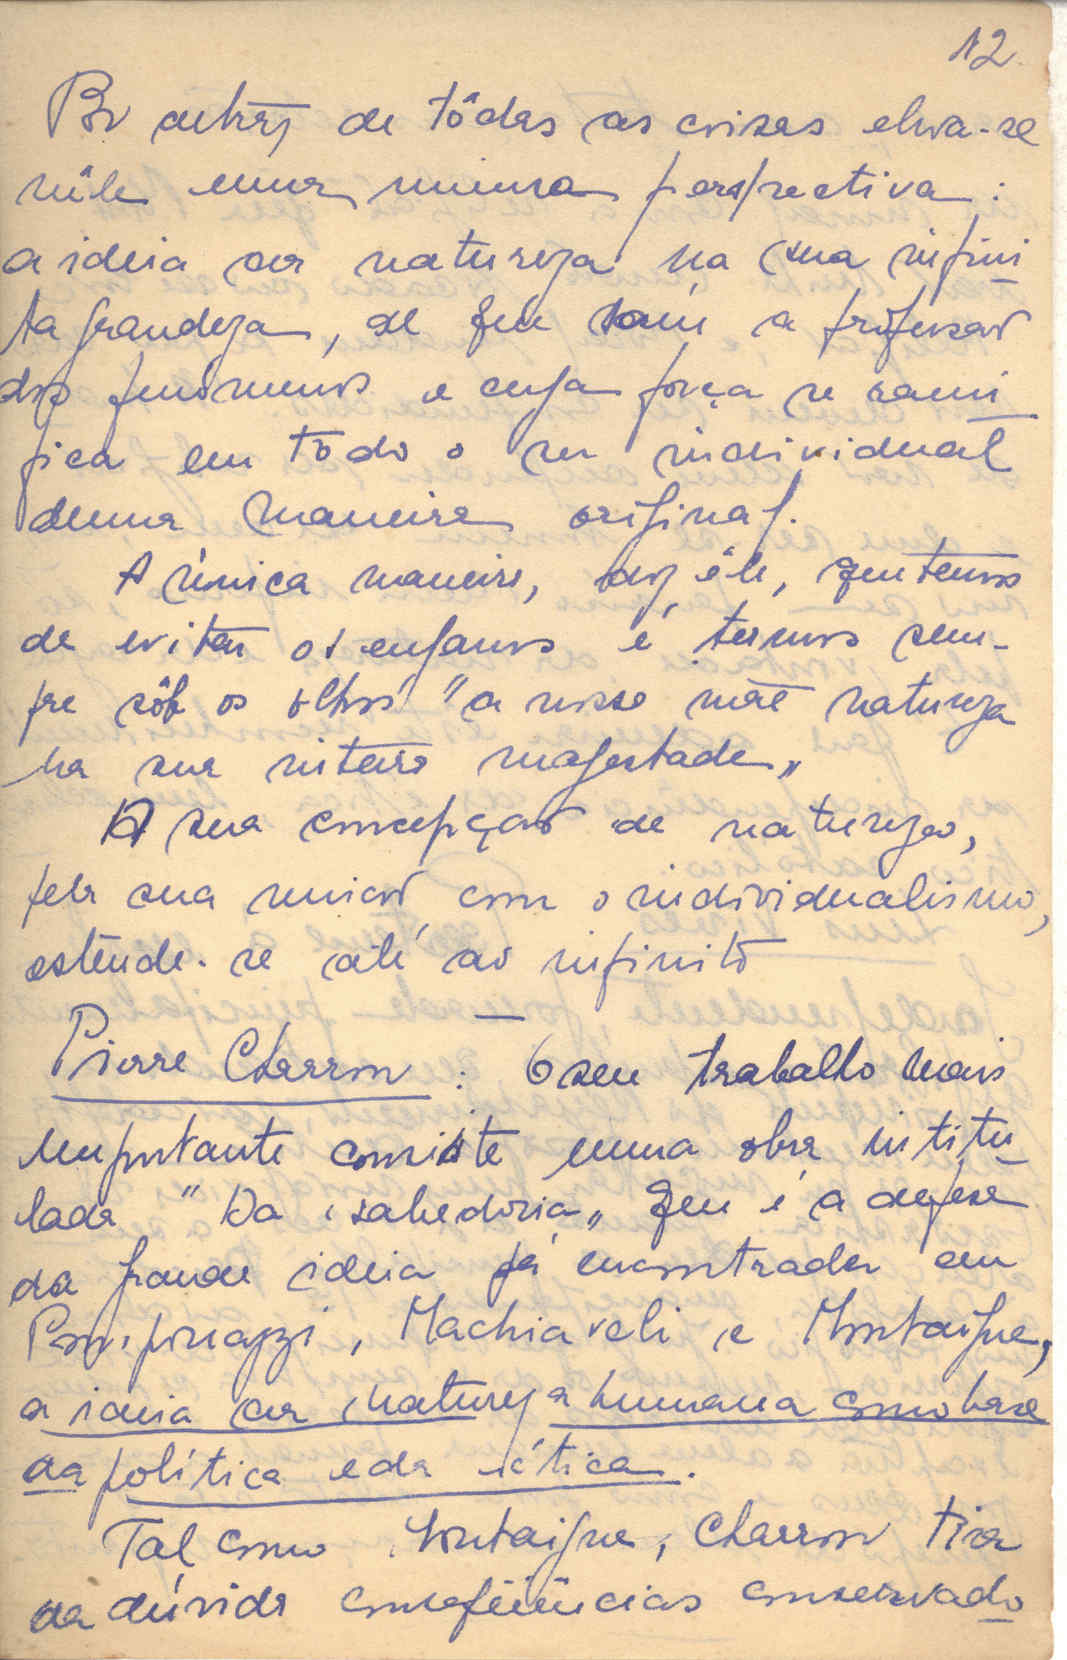 12
Por detrás de tôdas as crises eleva-se
nêle uma mesma perspectiva:
a ideia da natureza na sua infini
ta grandeza, de que sai a profusão
dos fenómenos e cuja força se rami
fica em todo o ser individual
duma maneira original.
A única maneira, diz êle, que temos
de evitar os enganos é termos sem-
pre sôb os olhos "a nossa mãe natureza
na sua inteira magestade„
A sua concepção de natureza,
pela sua união com o individualismo,
estende-se até ao infinito
Pierre Charron: O seu trabalho mais
importante consiste numa obra intitu
lada "Da sabedoria„ que é a defesa
da grande ideia já encontrada em
Pomponazzi, Machiaveli e Montaigne,
a ideia da natureza humana como base
da política e da ética.
Tal como Montaigne, Charron tira
da dúvida conseqüências conservado